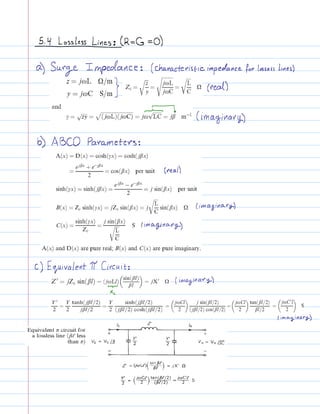 5.4 Lossless Lines: (R=G=0)
a) Surge Impedance: (characteristic impedance for lossless lines)
z = jωL Ω/m
y = jωC S/m
Zc = √(z/y) = √(jωL/jωC) = √(L/C) Ω (real)
and
γ = √zy = √(jωL)(jωC) = jω√LC = jβ m⁻¹ (imaginary)
b) ABCD Parameters:
A(x) = D(x) = cosh(γx) = cosh(jβx)
= (e^jβx + e^−jβx)/2 = cos(βx) per unit (real)
sinh(γx) = sinh(jβx) = (e^jβx − e^−jβx)/2 = j sin(βx) per unit
B(x) = Zc sinh(γx) = jZc sin(βx) = j√(L/C) sin(βx) Ω (imaginary)
C(x) = sinh(γx)/Zc = j sin(βx)/√(L/C) S (imaginary)
A(x) and D(x) are pure real; B(x) and C(x) are pure imaginary.
c) Equivalent π Circuit:
Z′ = jZc sin(βl) = (jωLl)(sin(βl)/βl) = jX′ Ω (imaginary)
Y′/2 = Y/2 tanh(jβl/2)/(jβl/2) = Y/2 sinh(jβl/2)/((jβl/2) cosh(jβl/2)) = (jωCl/2) j sin(βl/2)/((jβl/2) cos(βl/2)) = (jωCl/2) tan(βl/2)/(βl/2) = (jωC′l/2) S
(imaginary)
Equivalent π circuit for
a lossless line (βl less
than π)
Z′ = (jωLl)(sin βl/βl) = jX′ Ω
Y′/2 = (jωCl/2) tan(βl/2)/(βl/2) = jωC′l/2 S